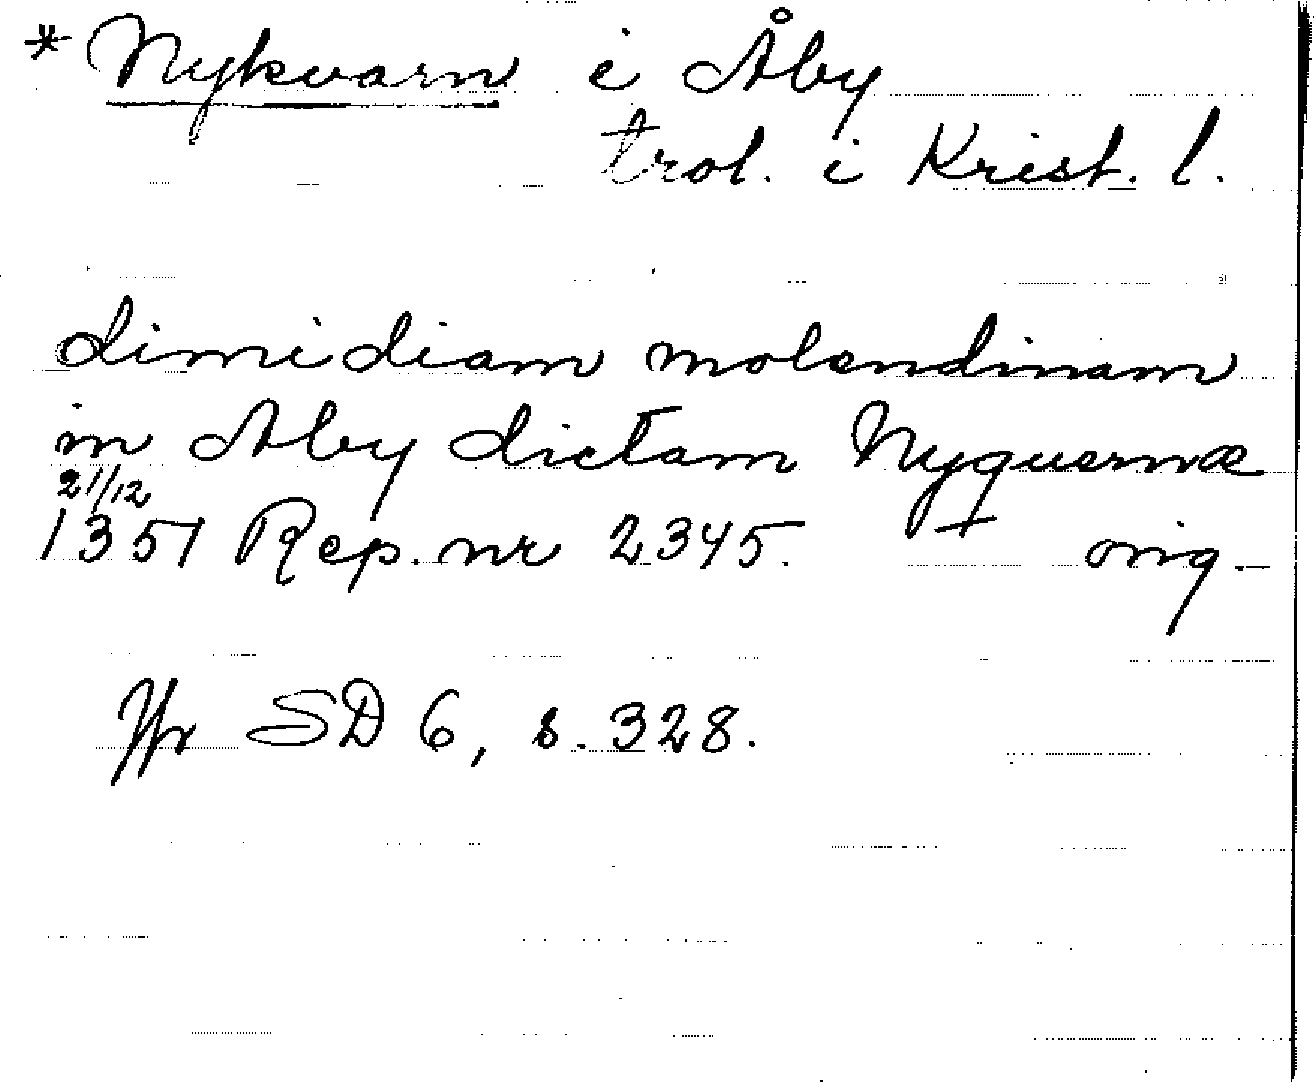 * Nykvarn i Åby
trol. i Krist. l.
dimidiam molendinam
in Aby dictam Nyquernæ
21/12
1351 Rep. nr 2345. orig.
Jfr SD 6, s. 328.